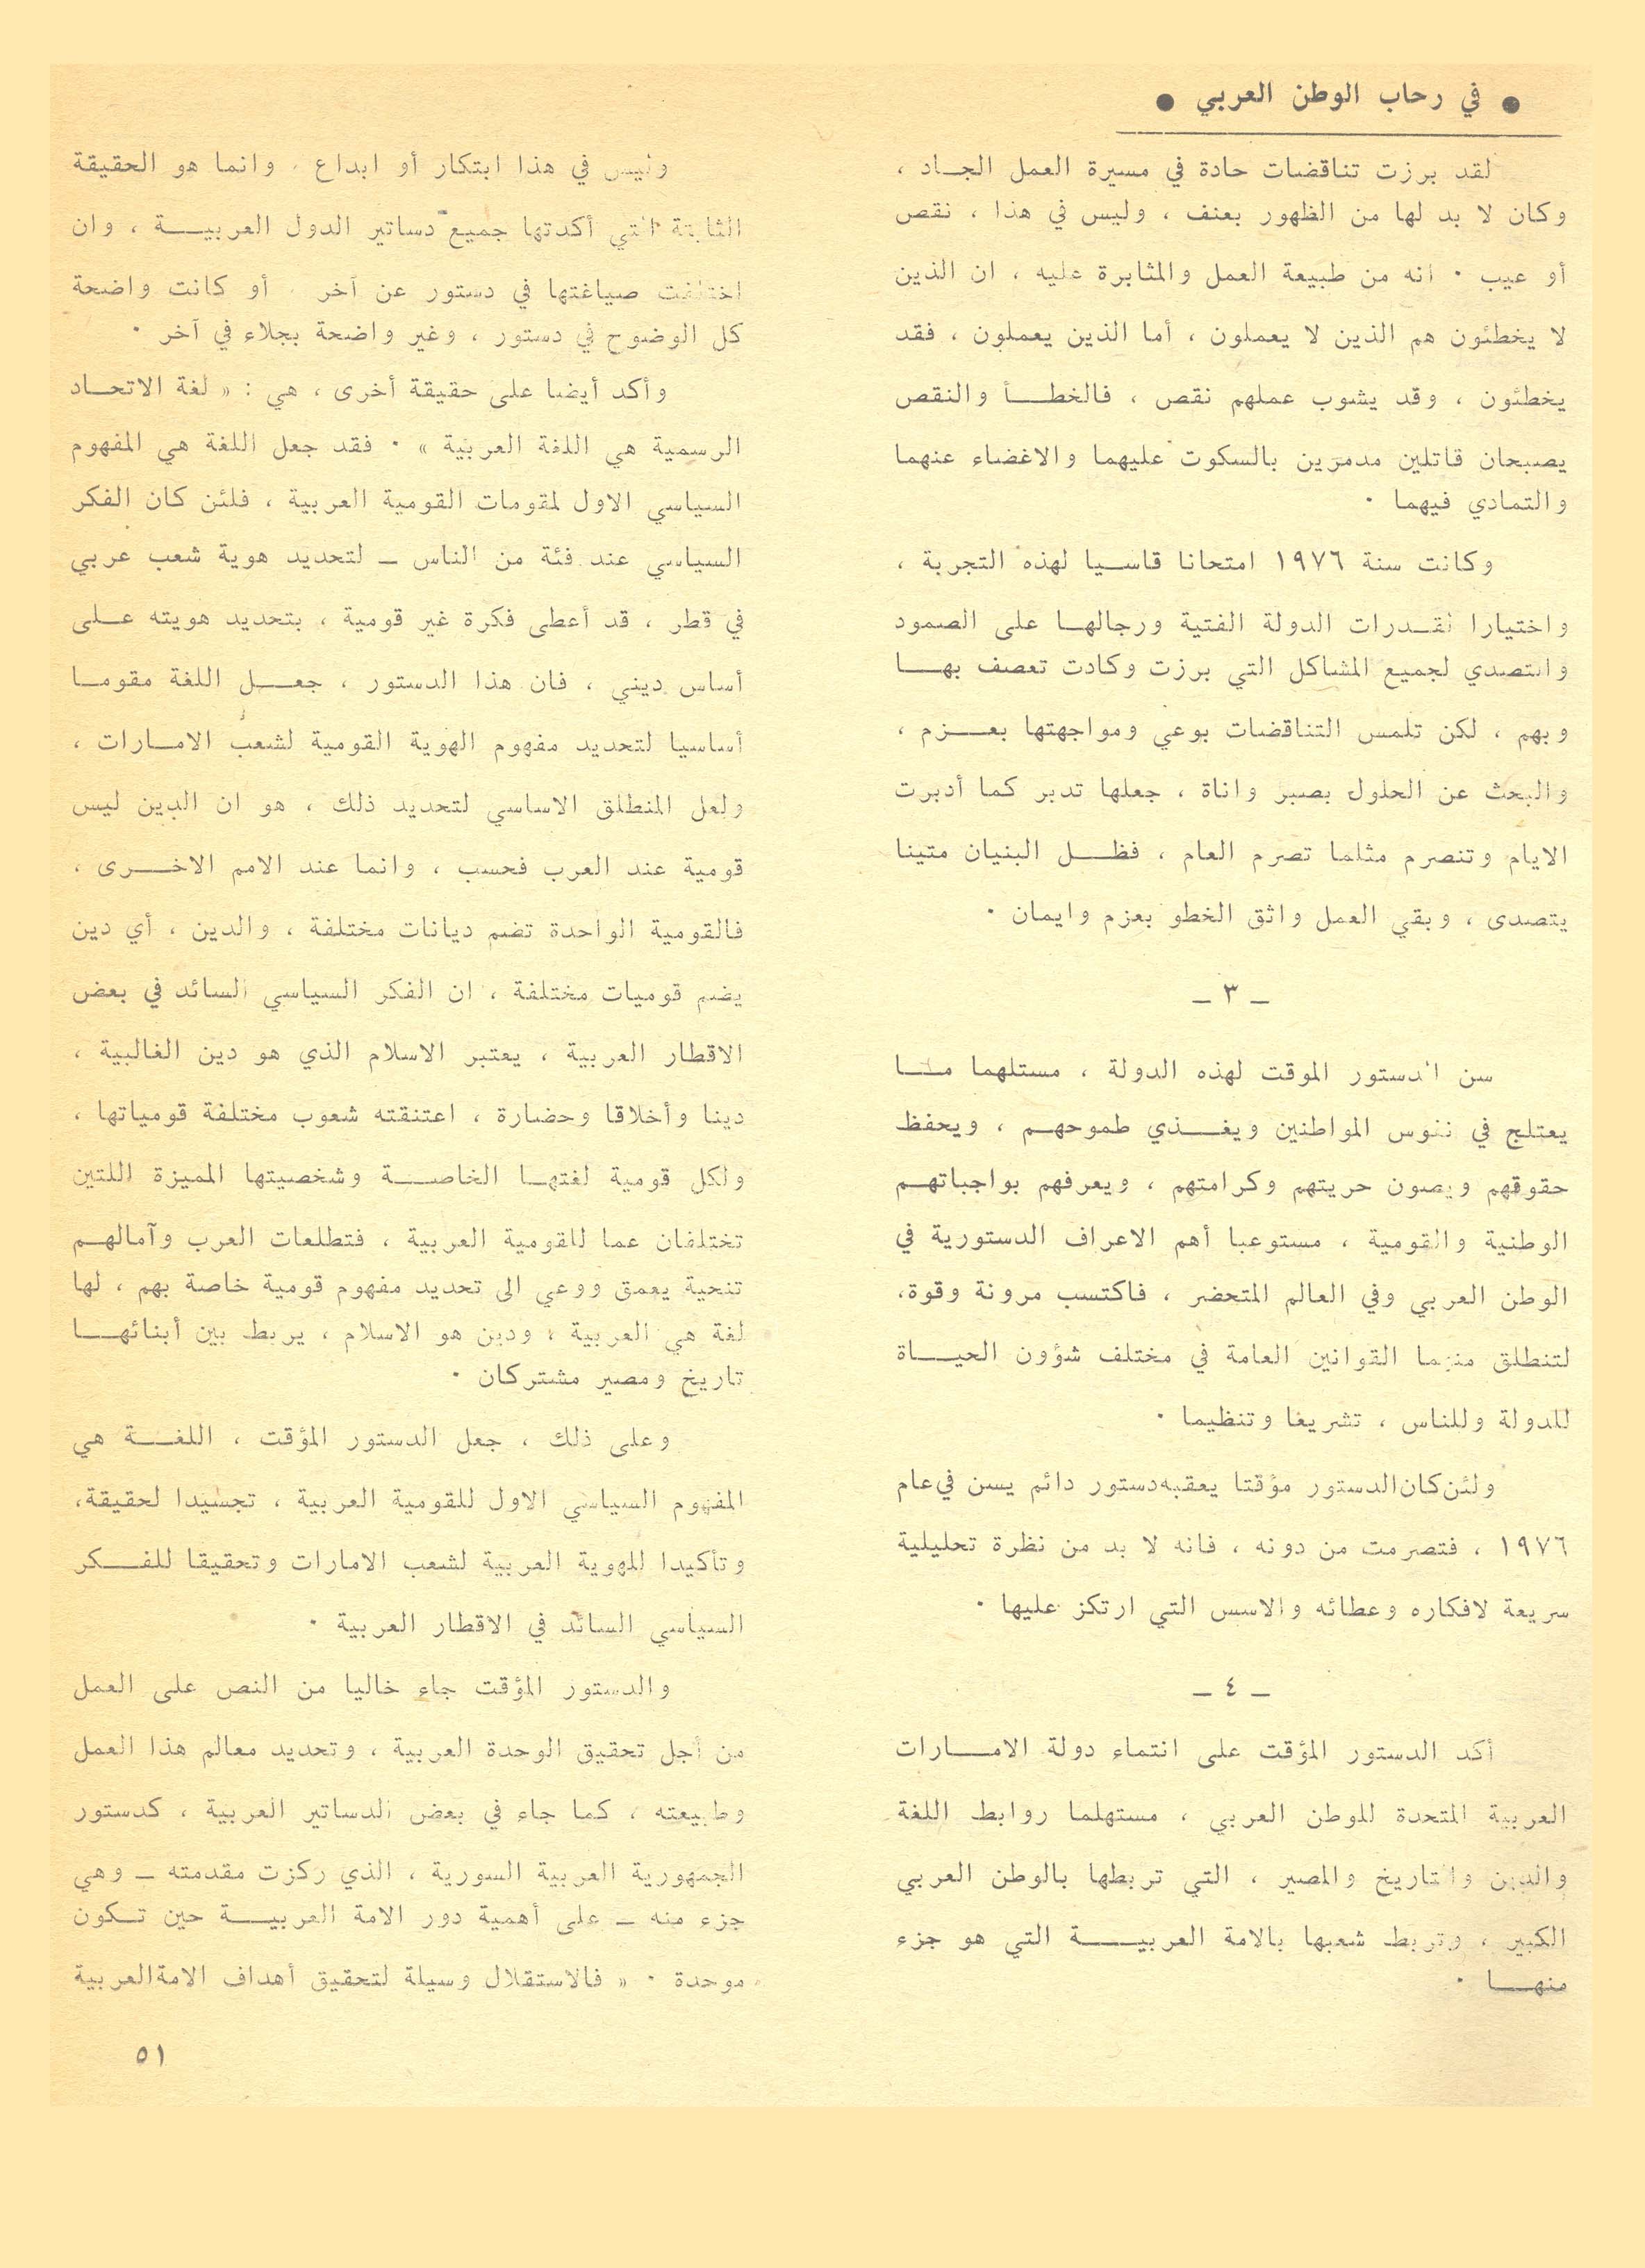 ● في رحاب الوطن العربي ●
لقد برزت تناقضات حادة في مسيرة العمل الجــاد ،
وكان لا بد لها من الظهور بعنف ، وليس في هذا ، نقص
أو عيب ٠ انه من طبيعة العمل والمثابرة عليه ، ان الذين
لا يخطئون هم الذين لا يعملون ، أما الذين يعملون ، فقد
يخطئون ، وقد يشوب عملهم نقص ، فالخطــأ والنقص
يصبحان قاتلين مدمرين بالسكوت عليهما والاغضاء عنهما
والتمادي فيهما ٠
وكانت سنة ١٩٧٦ امتحانا قاسـيا لهذه التجربة ،
واختيارا لقــدرات الدولة الفتية ورجالهــا على الصمود
والتصدي لجميع المشاكل التي برزت وكادت تعصف بهــا
وبهم ، لكن تلمس التناقضات بوعي ومواجهتها بعــزم ،
والبحث عن الحلول بصبر واناة ، جعلها تدبر كما أدبرت
الايام وتنصرم مثلما تصرم العام ، فظــل البنيان متينا
يتصدى ، وبقي العمل واثق الخطو بعزم وايمان ٠
ــ ٣ ــ
سن الدستور الموقت لهذه الدولة ، مستلهما مــا
يعتلج في نفوس المواطنين ويغــذي طموحهــم ، ويحفظ
حقوقهم ويصون حريتهم وكرامتهم ، ويعرفهم بواجباتهــم
الوطنية والقومية ، مستوعبا أهم الاعراف الدستورية في
الوطن العربي وفي العالم المتحضر ، فاكتسب مرونة وقوة،
لتنطلق منهما القوانين العامة في مختلف شؤون الحيــاة
للدولة وللناس ، تشريعا وتنظيما ٠
ولئن كان الدستور مؤقتا يعقبه دستور دائم يسن في عام
١٩٧٦ ، فتصرمت من دونه ، فانه لا بد من نظرة تحليلية
سريعة لافكاره وعطائه والاسس التي ارتكز عليها ٠
ــ ٤ ــ
أكد الدستور المؤقت على انتماء دولة الامــارات
العربية المتحدة للوطن العربي ، مستهلما روابط اللغة
والدين والتاريخ والمصير ، التي تربطها بالوطن العربي
الكبير ، وتربط شعبها بالامة العربيــة التي هو جزء
منهــا ٠
وليس في هذا ابتكار أو ابداع ، وانما هو الحقيقة
الثابتة التي أكدتها جميع دساتير الدول العربيــة ، وان
اختلفت صياغتها في دستور عن آخر ، أو كانت واضحة
كل الوضوح في دستور ، وغير واضحة بجلاء في آخر ٠
وأكد أيضا على حقيقة أخرى ، هي : « لغة الاتحــاد
الرسمية هي اللغة العربية » ٠ فقد جعل اللغة هي المفهوم
السياسي الاول لمقومات القومية العربية ، فلئن كان الفكر
السياسي عند فئة من الناس ــ لتحديد هوية شعب عربي
في قطر ، قد أعطى فكرة غير قومية ، بتحديد هويته عــلى
أساس ديني ، فان هذا الدستور ، جعــل اللغة مقومــا
أساسيا لتحديد مفهوم الهوية القومية لشعب الامــارات ،
ولعل المنطلق الاساسي لتحديد ذلك ، هو ان الدين ليس
قومية عند العرب فحسب ، وانما عند الامم الاخــرى ،
فالقومية الواحدة تضم ديانات مختلفة ، والدين ، أي دين
يضم قوميات مختلفة ، ان الفكر السياسي السائد في بعض
الاقطار العربية ، يعتبر الاسلام الذي هو دين الغالبية ،
دينا وأخلاقا وحضارة ، اعتنقته شعوب مختلفة قومياتها ،
ولكل قومية لغتهــا الخاصــة وشخصيتها المميزة اللتين
تختلفان عما للقومية العربية ، فتطلعات العرب وآمالهــم
تنحية يعمق ووعي الى تحديد مفهوم قومية خاصة بهم ، لها
لغة هي العربية ، ودين هو الاسلام ، يربط بين أبنائهــا
تاريخ ومصير مشتركان ٠
وعلى ذلك ، جعل الدستور المؤقت ، اللغــة هي
المفهوم السياسي الاول للقومية العربية ، تجسيدا لحقيقة،
وتأكيدا للهوية العربية لشعب الامارات وتحقيقا للفــكر
السياسي السائد في الاقطار العربية ٠
والدستور المؤقت جاء خاليا من النص على العمل
من أجل تحقيق الوحدة العربية ، وتحديد معالم هذا العمل
وطبيعته ، كما جاء في بعض الدساتير العربية ، كدستور
الجمهورية العربية السورية ، الذي ركزت مقدمته ــ وهي
جزء منه ــ على أهمية دور الامة العربيــة حين تــكون
موحدة ٠ « فالاستقلال وسيلة لتحقيق أهداف الامة العربية
٥١